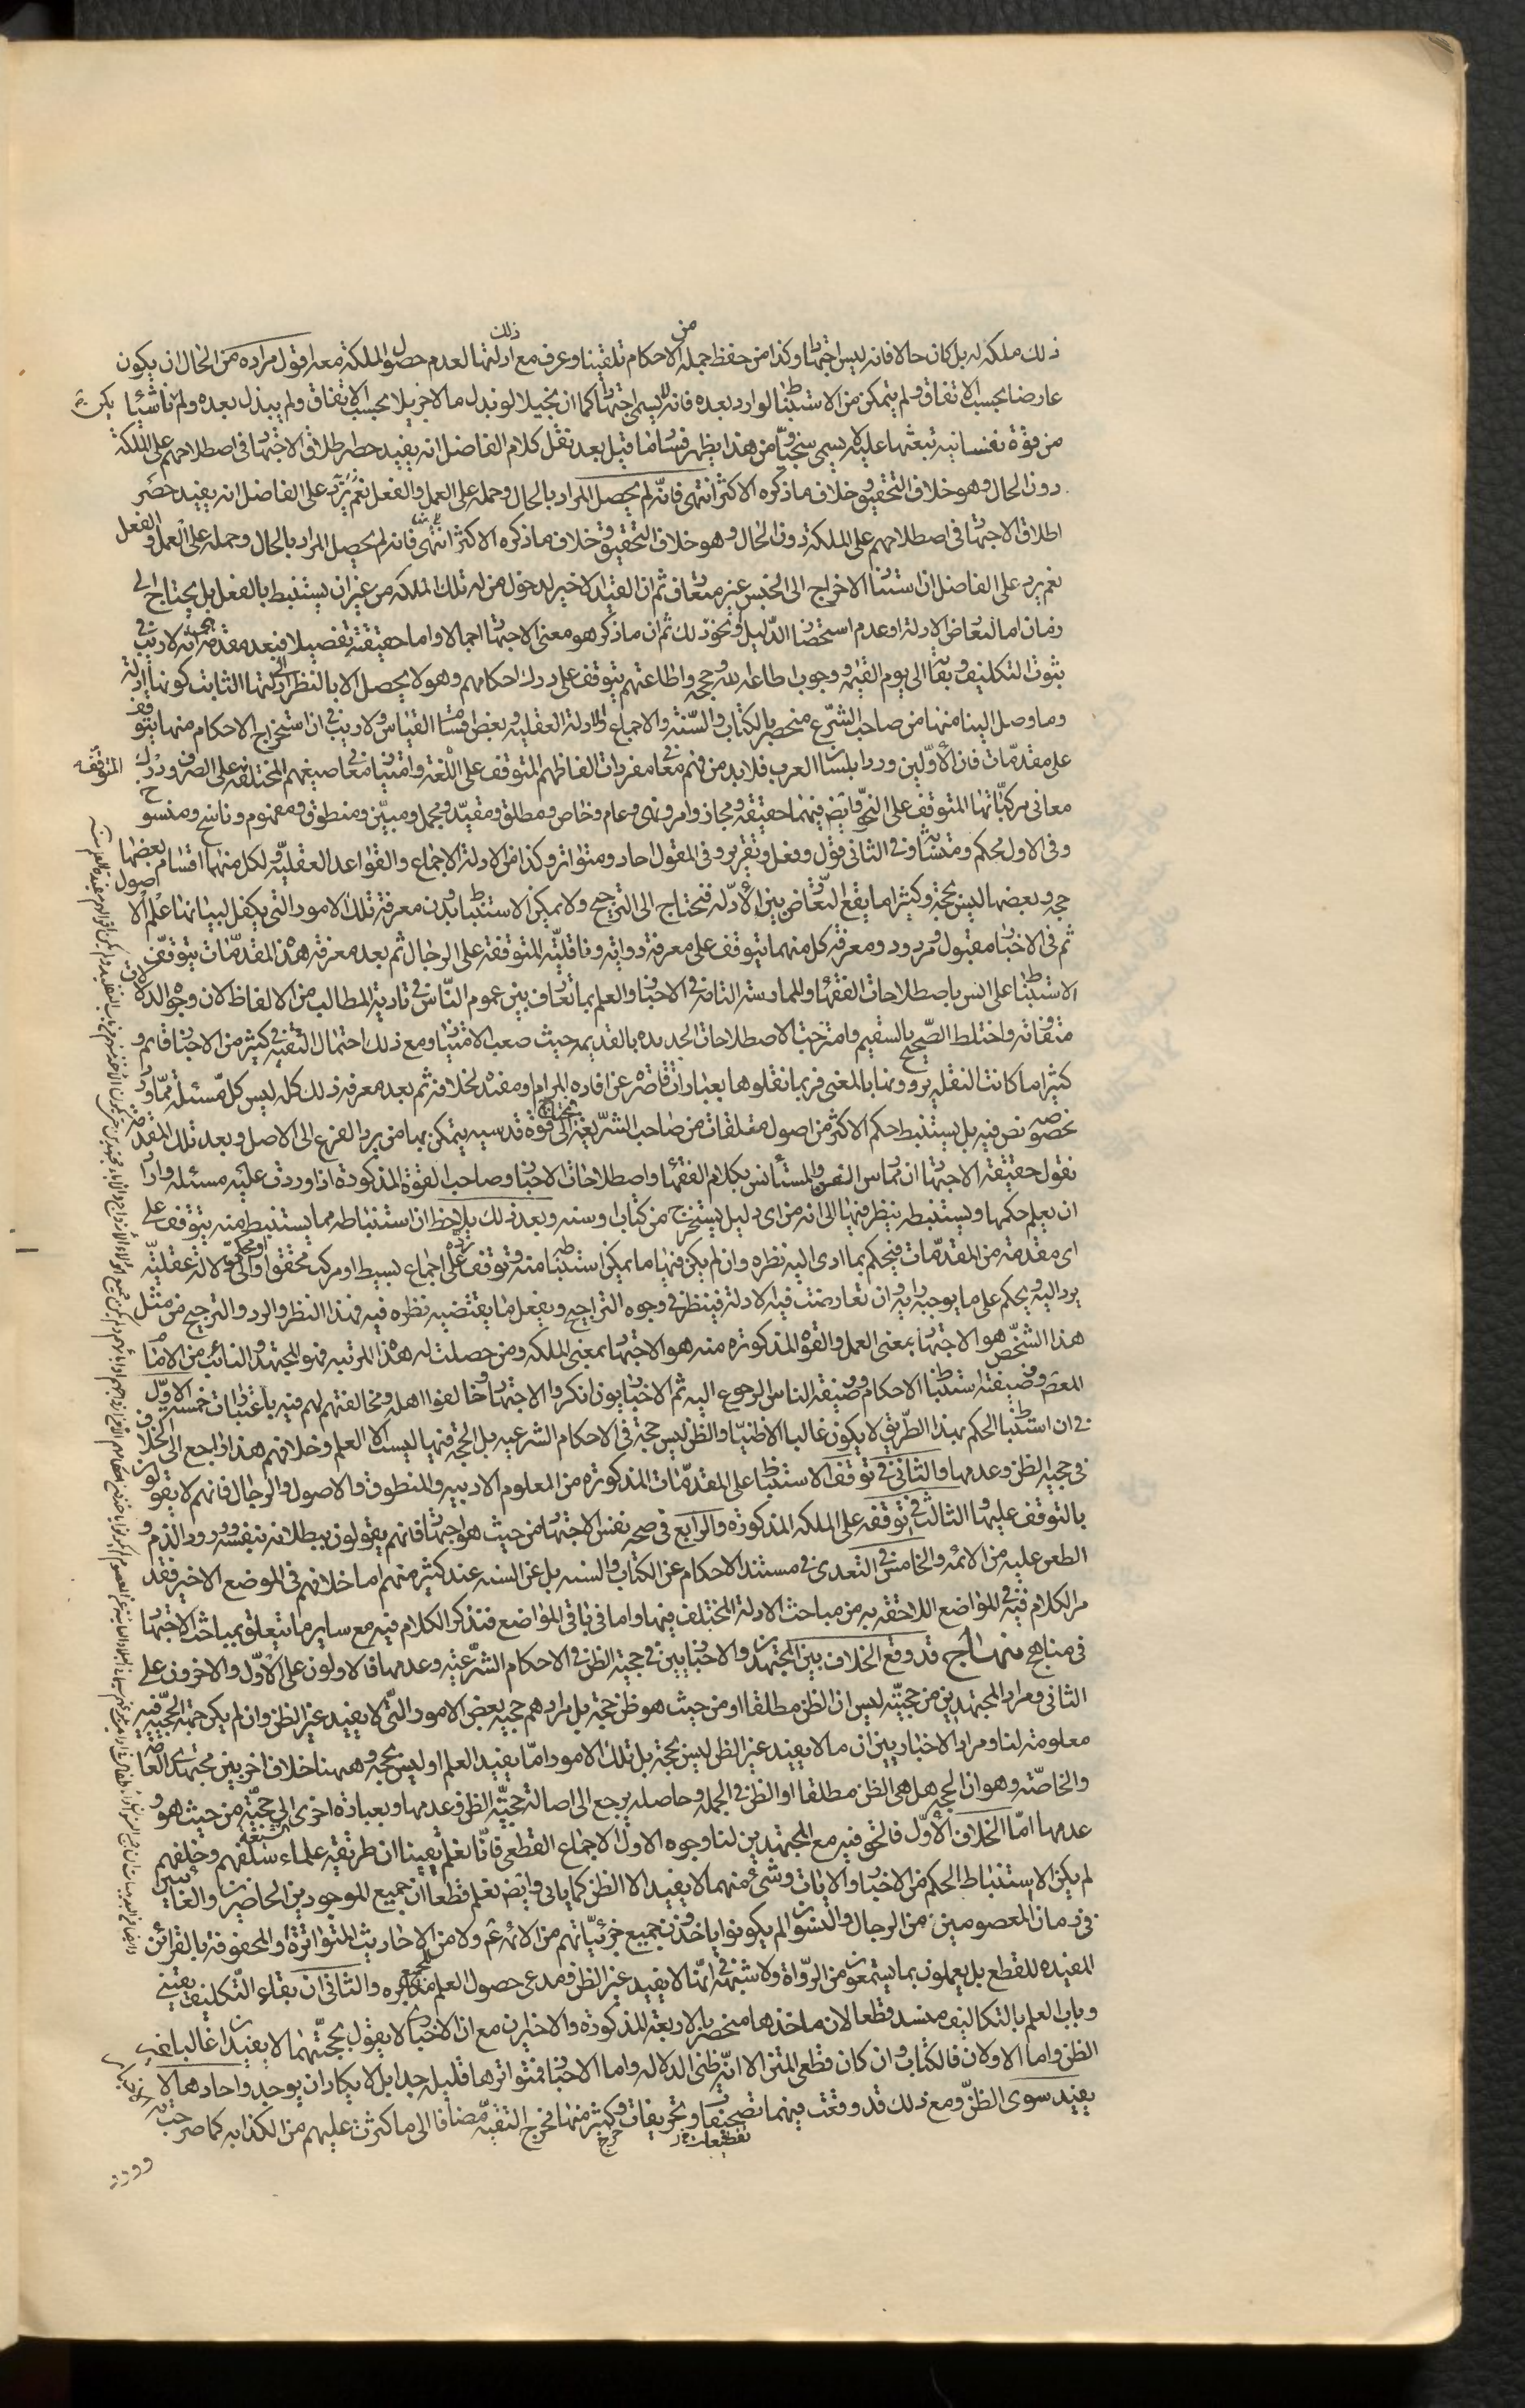 ذلك ملكة له بل كان حالا فانه ليس اجتهادا وكذا من حفظ جملة من الاحكام تلقينا وعرف مع ذلك ادلتها لعدم حصول الملكة معه اقول مراده من الحال ان يكون
عارضا بحسب الاتفاق ولم يتمكن من الاستنباط لو اراد بعده فانه لا يسمى اجتهادا كما ان بخيلا لو بذل مالا جزيلا بحسب الاتفاق ولم يبذل بعده ولم يكن ناشئا
من قوة نفسانية تبعثها عليه لا يسمى سخيا ومن هذا يظهر فساد ما قيل بعد نقل كلام الفاضل انه يفيد حصر اطلاق الاجتهاد في اصطلاحهم على الملكة
دون الحال وهو خلاف التحقيق وخلاف ما ذكره الاكثر انتهى فانه لم يحصل المراد بالحال وحمله على العمل والفعل نعم يرد على الفاضل انه يفيد حصر
اطلاق الاجتهاد في اصطلاحهم على الملكة دون الحال وهو خلاف التحقيق وخلاف ما ذكره الاكثر انتهى فانه لم يحصل المراد بالحال وحمله على العمل والفعل
نعم يرد على الفاضل ان استناد الاخراج الى الجنس غير متعارف ثم ان القيد الاخير لدخول من له تلك الملكة من غير ان يستنبط بالفعل بل يحتاج الى
زمان اما لتعارض الادلة او عدم استحضار الدليل او نحو ذلك ثم ان ما ذكر هو معنى الاجتهاد اجمالا واما حقيقته تفصيلا فبعد مقدمة هي انه لا ريب في
ثبوت التكليف وبقائه الى يوم القيمة ووجوب اطاعة الله وحججه واطاعتهم يتوقف على درك احكامهم وهو لا يحصل الا بالنظر الى ادلتها الثابت كونها ادلة
وما وصل الينا منها من صاحب الشرع منحصر بالكتاب والسنة والاجماع والادلة العقلية وبعض اقسام القياس ولا ريب في ان استخراج الاحكام منها يتوقف
على مقدمات فان الاولين وردا بلسان العرب فلا بد من فهم معاني مفردات الفاظهم المتوقف على اللغة وامتياز معاني صيغهم المختلفة المتوقفة على الصرف ودرك
معاني مركباتها المتوقف على النحو وايضا فيهما حقيقة ومجاز وامر ونهى وعام وخاص ومطلق ومقيد ومجمل ومبين ومنطوق ومفهوم وناسخ ومنسوخ
وفي الاول محكم ومتشابه وفي الثاني قول وفعل وتقرير وفي المقول احاد ومتواتر وكذا من الادلة الاجماع والقواعد العقلية ولكل منهما اقسام بعضها
حجة وبعضها ليس بحجة وكثيرا ما يقع التعارض بين الادلة فتحتاج الى الترجيح ولا يمكن الاستنباط بدون معرفة تلك الامور التي يكفل لبيانها علم الاصول
ثم في الاخبار مقبول ومردود ومعرفة كل منهما يتوقف على معرفة رواته وناقليه المتوقفة على الرجال ثم بعد معرفة هذه المقدمات يتوقف
الاستنباط على انس باصطلاحات الفقهاء والممارسة التامة في الاخبار والعلم بما تعارف بين عموم الناس في تادية المطالب من الالفاظ لان وجوه الدلالات
متفاوتة واختلط الصحيح بالسقيم وامتزجت الاصطلاحات الجديدة بالقديمة بحيث صعب الامتياز ومع ذلك احتمال التقية في كثير من الاخبار قائم و
كثيرا ما كانت النقلة يروونها بالمعنى فربما نقلوها بعبارات قاصرة عن افادة المرام ومفيدة لخلافه ثم بعد معرفة ذلك كله ليس كل مسئلة مما ورد
بخصوصه نص فيه بل يستنبط حكم الاكثر من اصول متلقات من صاحب الشريعة فيحتاج الى قوة قدسية يتمكن بها من رد الفرع الى الاصل وبعد تلك المقدمة
نقول حقيقة الاجتهاد ان الممارس المستأنس بكلام الفقهاء واصطلاحات الاخبار وصاحب القوة المذكورة اذا وردت عليه مسئلة واراد
ان يعلم حكمها ويستنبطه ينظر فيها الى انه من اى دليل يستخرج من كتاب او سنة وبعد ذلك يلاحظ ان استنباطه مما يستنبط منه يتوقف على
اى مقدمة من المقدمات فيحكم بما ادى اليه نظره وان لم يكن فيها ما يمكن استنباطه منه وتوقف على اجماع بسيط او مركب محقق او محكى او دلالة عقلية
يرد اليه ويحكم على ما يوجبه رايه وان تعارضت فيه الادلة فينظر في وجوه التراجيح ويفعل ما يقتضيه نظره فيه فهذا النظر والرد والترجيح من مثل
هذا الشخص هو الاجتهاد بمعنى العمل والقوة المذكورة منه هو الاجتهاد بمعنى الملكة ومن حصلت له هذه المرتبة فهو المجتهد والنائب من الامام
المعصوم ووظيفته استنباط الاحكام ووظيفة الناس الرجوع اليه ثم الاخباريون انكروا الاجتهاد وخالفوا اهله ومخالفتهم لهم فيه باعتبارات خمسة الاول
في ان استنباط الحكم بهذا الطريق لا يكون غالبا الا ظنيا والظن ليس حجة في الاحكام الشرعية بل الحجة فيها ليست الا العلم وخلافهم هذا راجع الى الخلاف
في حجية الظن وعدمها والثاني في توقف الاستنباط على المقدمات المذكورة من العلوم الادبية والمنطق والاصول والرجال فانهم لا يقولون
بالتوقف عليها والثالث في توقفه على الملكة المذكورة والرابع في صحة نفس الاجتهاد من حيث هو اجتهاد فانهم يقولون ببطلانه بنفسه وورود الذم و
الطعن عليه من الائمة والخامس في التعدى في مستند الاحكام عن الكتاب والسنة بل عن السنة عند كثير منهم اما خلافهم في الموضع الاخير فقد
مر الكلام فيه في المواضع اللاحقة به من مباحث الادلة المختلف فيها واما في باقي المواضع فنذكر الكلام فيه مع ساير ما يتعلق بمباحث الاجتهاد
في مناهج منهاج قد وقع الخلاف بين المجتهدين والاخباريين في حجية الظن في الاحكام الشرعية وعدمها فالاولون على الاول والاخرون على
الثاني ومراد المجتهدين من حجيته ليس ان الظن مطلقا او من حيث هو ظن حجة بل مرادهم حجية بعض الامور التي لا يفيد غير الظن وان لم يكن جهة الحجية فيه
معلومة لنا ومراد الاخباريين ان ما لا يفيد غير الظن ليس بحجة بل تلك الامور اما يفيد العلم او ليس بحجة وههنا خلاف اخر بين مجتهدى العامة
والخاصة وهو ان الحجة هل هي الظن مطلقا او الظن في الجملة وحاصله يرجع الى اصالة حجية الظن وعدمها وبعبارة اخرى الى حجيته من حيث هو و
عدمها اما الخلاف الاول فالحق فيه مع المجتهدين لنا وجوه الاول الاجماع القطعي فانا نعلم يقينا ان طريقة علماء الشيعة سلفهم وخلفهم
لم يكن الا استنباط الحكم من الاخبار والايات وشئ منهما لا يفيد الا الظن كما ياتي وايضا نعلم قطعا ان جميع الموجودين الحاضرين والغائبين
في زمان المعصومين من الرجال والنسوان لم يكونوا ياخذون جميع جزئياتهم من الائمة ع ولا من الاحاديث المتواترة او المحفوفة بالقرائن
المفيدة للقطع بل يعملون بما يستمعون من الرواة ولا شبهة في انها لا يفيد غير الظن فمدعى حصول العلم للجميع مكابرة والثاني ان بقاء التكليف يقيني
وباب العلم بالتكاليف منسد قطعا لان ماخذها منحصر بالاربعة المذكورة والاخيران مع ان الاخبارى لا يقول بحجيتهما لا يفيدان غالبا غير
الظن واما الاولان فالكتاب وان كان قطعي المتن الا انه ظني الدلالة واما الاخبار فمتواترها قليل جدا بل لا يكاد ان يوجد واحادها لا
يفيد سوى الظن ومع ذلك قد وقعت فيهما تصحيفات وتحريفات وتقطيعات وكثير منها خرج مخرج التقية مضافا الى ما كثرت عليهم من الكذابة كما صرحت به